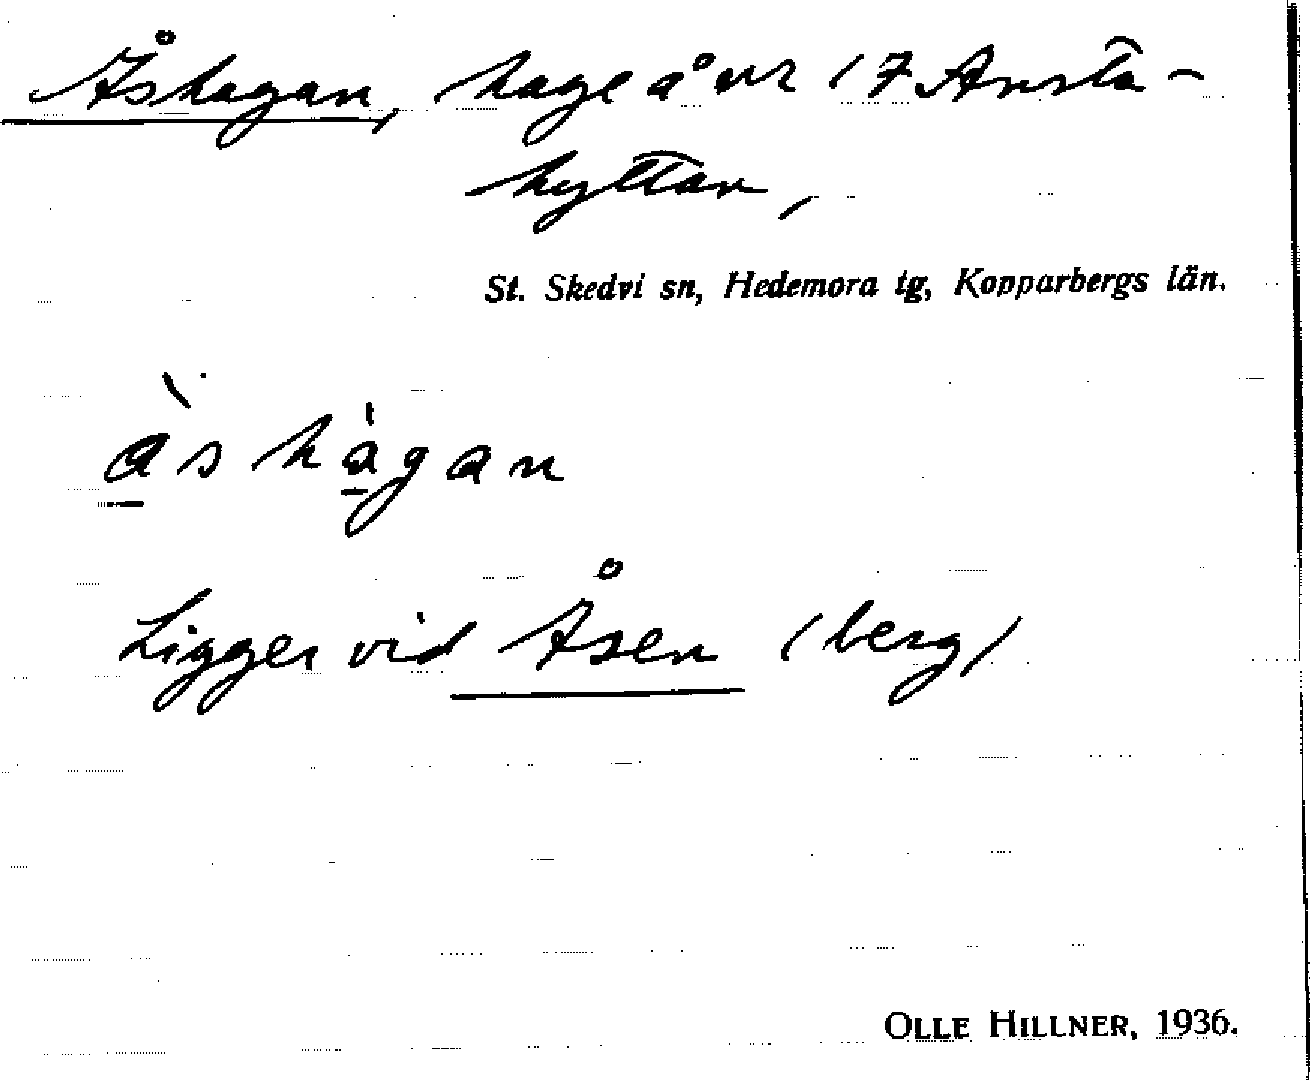 Åshagan, hage å nr 17 Ansta-
hyttan,
St. Skedvi sn, Hedemora tg, Kopparbergs län.
a̱̍s ha̱̍gan
Ligger vid Åsen (berg)
OLLE HILLNER, 1936.